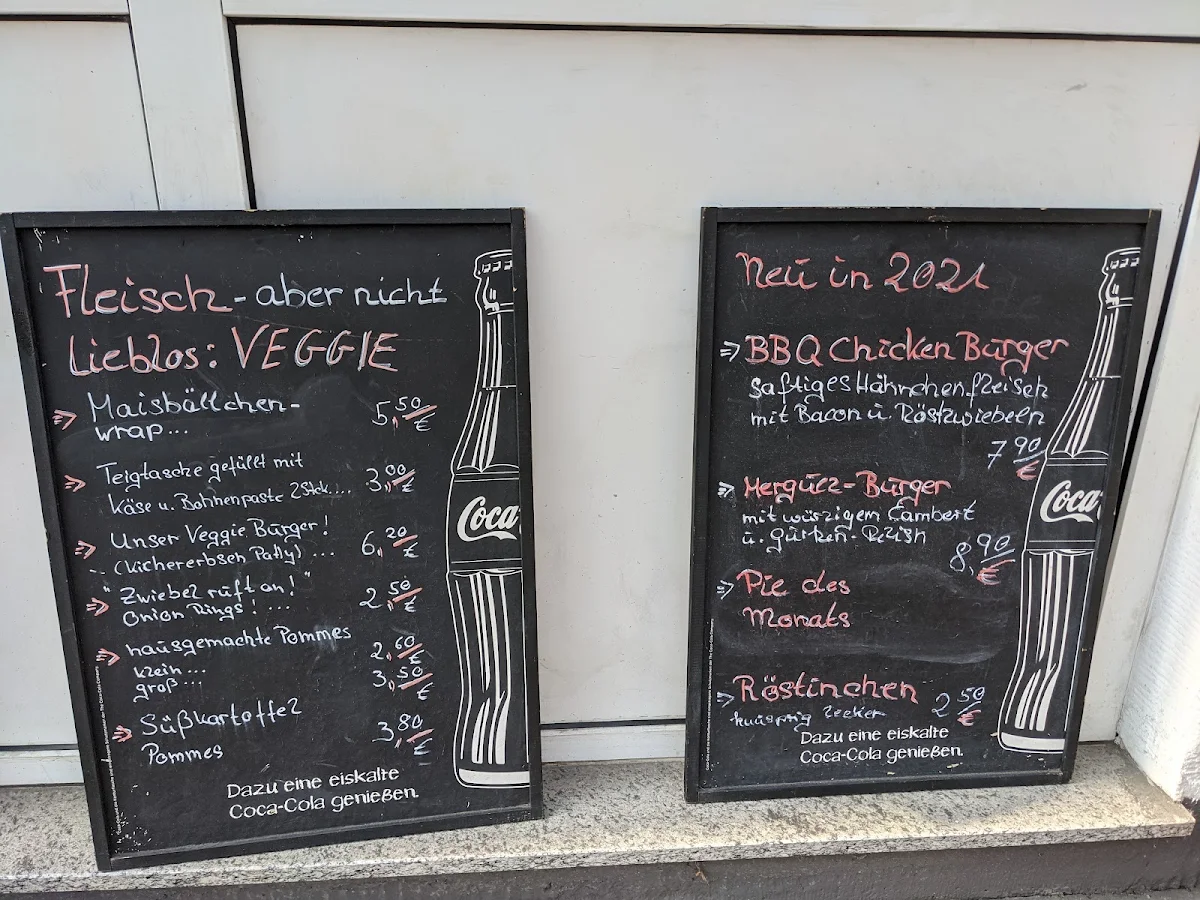 Fleisch - aber nicht
Lieblos: VEGGIE
Maisbällchen- 5,50 €
wrap...
Teigtasche gefüllt mit
Käse u. Bohnenpaste 2Stck.... 3,00 €
Unser Veggie Burger!
(Kichererbsen Patty) ... 6,20 €
"Zwiebel ruft an!"
Onion Rings! ... 2,50 €
hausgemachte Pommes
klein... 2,60 €
groß... 3,50 €
Süßkartoffel
Pommes 3,80 €
Dazu eine eiskalte
Coca-Cola genießen.
Coca
Neu in 2021
BBQ Chicken Burger
saftiges Hähnchenfleisch
mit Bacon u. Röstzwiebeln
7,90 €
Merguez-Burger
mit würzigem Cambert
u. gurken-Relish
8,90 €
Pie des
Monats
Röstinchen 2,50 €
knusprig lecker
Dazu eine eiskalte
Coca-Cola genießen.
Coca